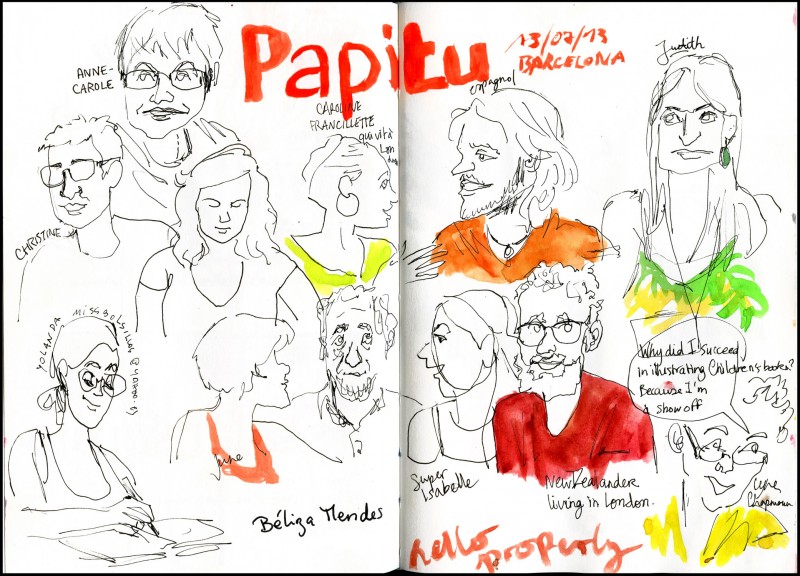 Papitu
13/07/13
BARCELONA
ANNE-
CAROLE
CAROLINE
FRANCILLETTE
qui vit à
London
espagnol
Judith
CHRISTINE
YOLANDA
June
Super
Isabelle
New Zealander
living in London.
Why did I succeed
in illustrating Children's books?
Because I'm
a show off
Lynn
Chapman
Béliza Mendes
hello
properly